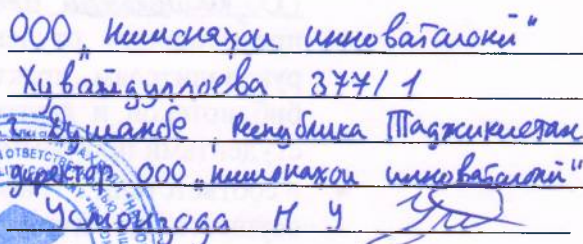 ООО „Нишонахои инноватсионй"
Хувайдуллоева 377/1
г. Душанбе, Республика Таджикистан
директор ООО „нишонахои инноватсионй"
Усмонзода Н У